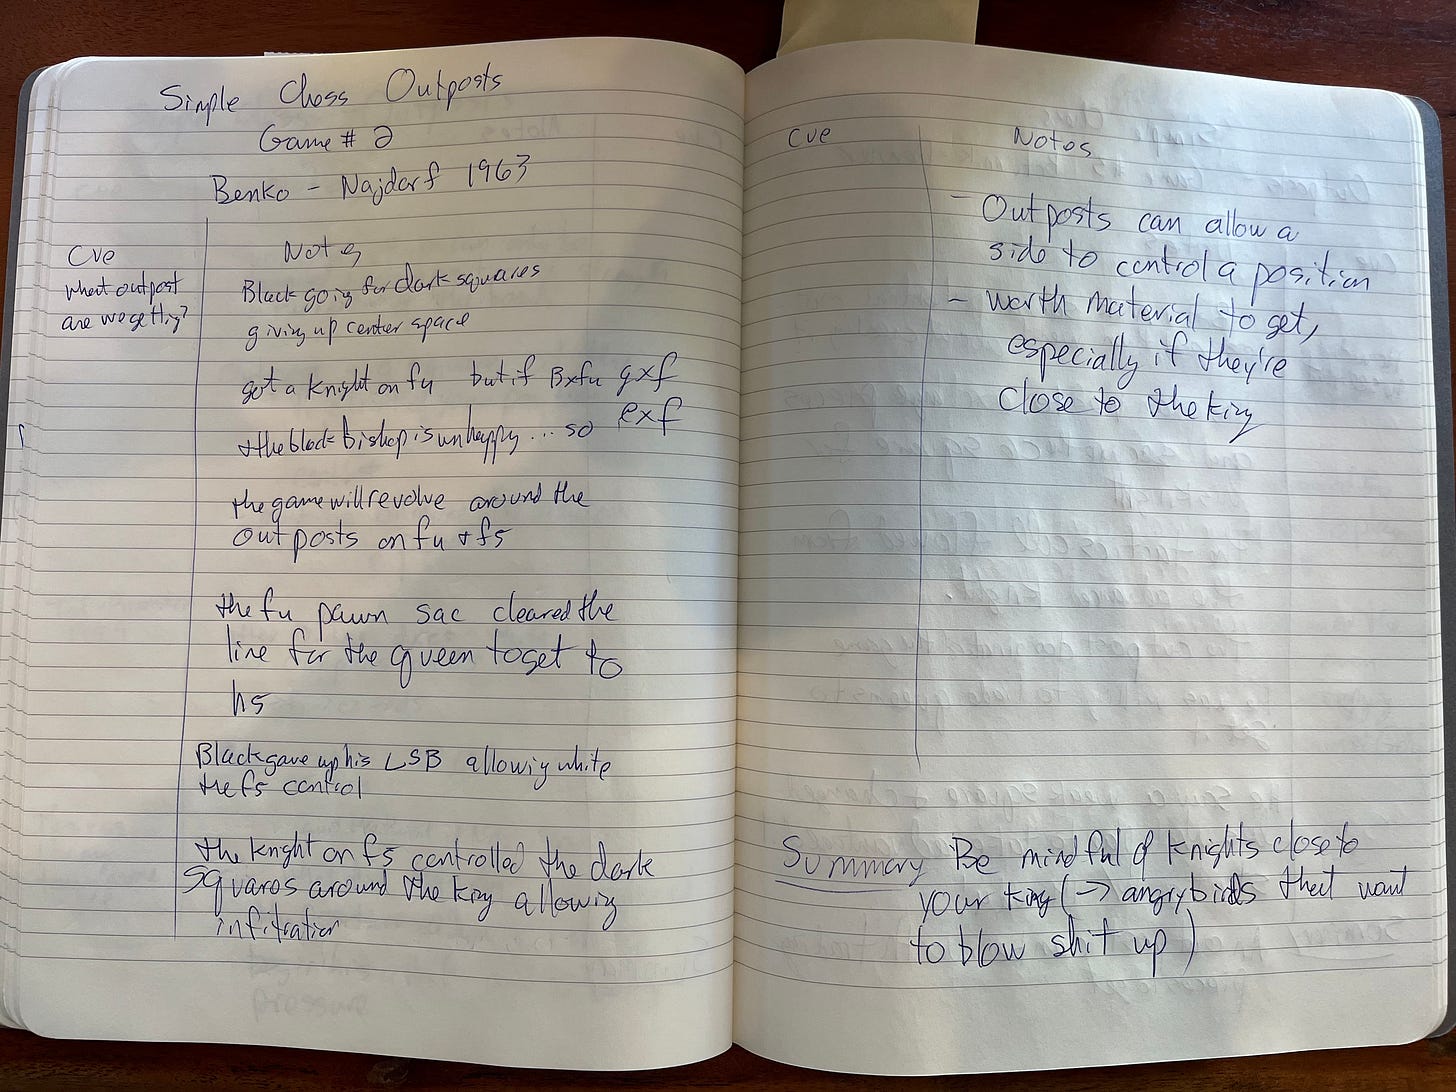 Simple Chess Outposts
Game # 2
Benko - Najdorf 1963
Cue
Notes
what outpost
are we getting?
Black going for dark squares
giving up center space
got a knight on f4 but if Bxf4 gxf
exf
& the black bishop is unhappy ... so
the game will revolve around the
outposts on f4 & f5
the f4 pawn sac cleared the
line for the queen to get to
h5
Black gave up his LSB allowing white
the f5 control
the knight on f5 controlled the dark
squares around the king allowing
infiltration
Cue
Notes
- Outposts can allow a
side to control a position
- worth material to get,
especially if they're
close to the king
Summary Be mindful of knights close to
your king (→ angry birds that want
to blow shit up)